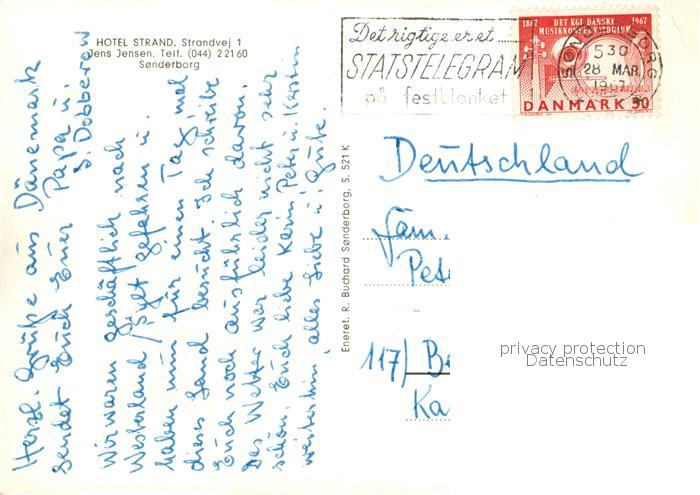 HOTEL STRAND, Strandvej 1
Jens Jensen. Telf. (044) 22160
Sønderborg
Herzl. Grüße aus Dänemark
sendet Euch Euer Papa u.
S. Dobberow
Wir waren geschäftlich nach
Westerland/Sylt gefahren u.
haben nun für einen Tag mal
dieses Land besucht. Ich schreibe
Euch noch ausführlich davon.
Das Wetter war leider nicht sehr
schön. Euch liebe Karin, Peter u. Kerstin
weiterhin, alles Liebe u. Gute.
Eneret. R. Buchard Sønderborg, S. 521 K
Det rigtige er et
STATSTELEGRAM
på festblanket
1867 DET KGL DANSKE 1967
MUSIKKONSERVATORIUM
DANMARK 50
530
28 MAR.
1967
Deutschland
Fam.
Pet
117) Be
Ka
privacy protection
Datenschutz